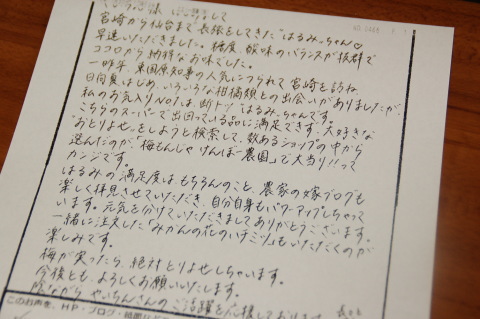 宮崎から仙台まで長旅をしてきた"はるみ"ちゃん♡
早速いただきました。糖度、酸味のバランスが抜群で
ココロから納得なお味でした。
一昨年、東国原知事の人気につられて宮崎を訪ね、
日向夏はじめ、いろいろな柑橘類との出会いがありましたが、
私のお気入りNo.1は、断トツ"はるみ"ちゃんです。
こちらのスーパーで出回っている品に満足できず、大好きな
"おとりよせ"をしようと検索して、数あるショップの中から
選んだのが、梅もんじゃけんぼー農園"で大当り!!って
カンジです。
はるみの満足度は、もちろんのこと、農家の嫁ブログも
楽しく拝見させていただき、自分自身もパワーアップしちゃって
います。元気を分けていただきましてありがとうございます。
一緒に注文した「みかんの花のハチミツ」もいただくのが
楽しみです。
梅が実ったら、絶対とりよせしちゃいます。
今後とも、よろしくお願いいたします。
陰ながら、やいちんさんのご活躍を応援しております。
このお声を、HP・ブログ・